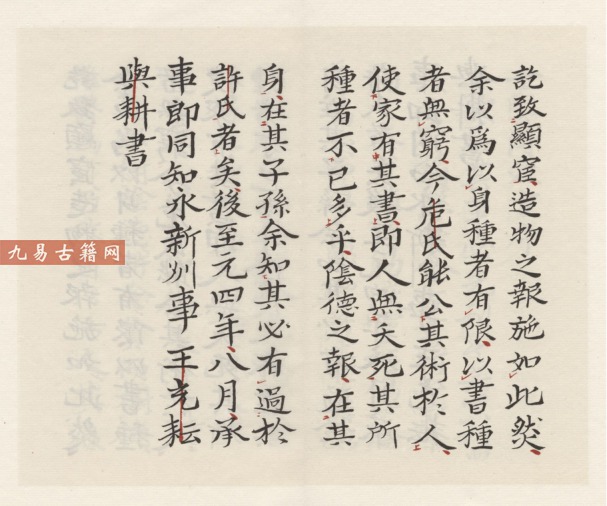 訖致顯宦造物之報施如此然
余以為以身種者有限以書種
者無窮今危氏能公其術於人
使家有其書即人無夭死其所
種者不已多乎陰德之報在其
身在其子孫余知其必有過於
許氏者矣後至元四年八月承
事郎同知永新州事王充耘
與耕書
九易古籍网